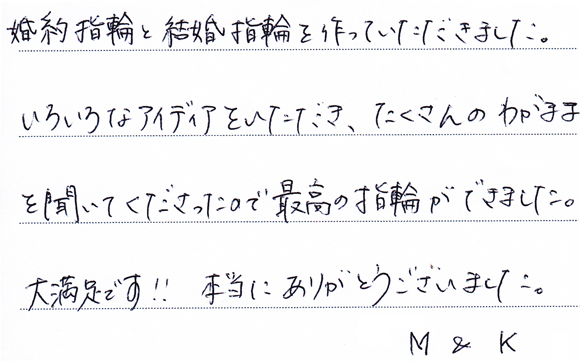 婚約指輪と結婚指輪を作っていただきました。
いろいろなアイディアをいただき、たくさんのわがまま
を聞いてくださったので最高の指輪ができました。
大満足です!! 本当にありがとうございました。
M & K